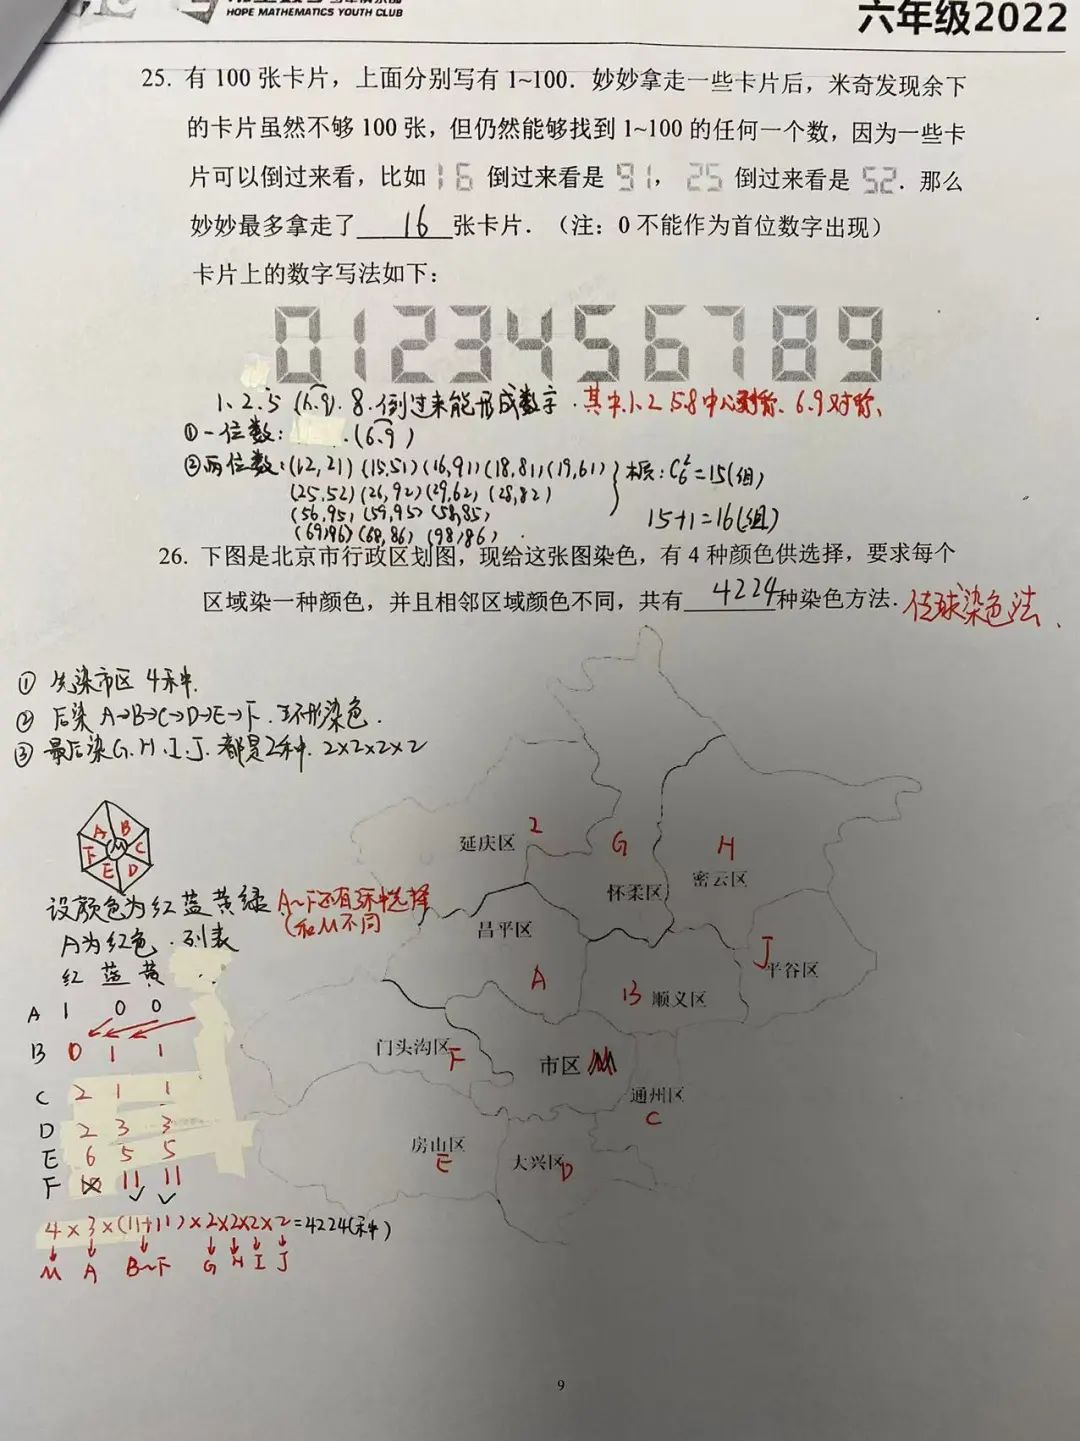 HOPE MATHEMATICS YOUTH CLUB
六年级2022
25. 有 100 张卡片，上面分别写有 1~100．妙妙拿走一些卡片后，米奇发现余下
的卡片虽然不够 100 张，但仍然能够找到 1~100 的任何一个数，因为一些卡
片可以倒过来看，比如 16 倒过来看是 91， 25 倒过来看是 52．那么
妙妙最多拿走了 16 张卡片．（注：0 不能作为首位数字出现）
卡片上的数字写法如下：
0 1 2 3 4 5 6 7 8 9
1、2、5 (6.9)、8.倒过来能形成数字．其中1、2 5.8中心对称、6.9对称、
①一位数： (6.9)
②两位数：(12,21) (15,51) (16,91) (18,81) (19,61)
(25,52) (26,92) (29,62) (28,82)
(56,95) (59,95) (58,85)
(69,96) (68,86) (98,86)
本质：C₆²=15(组)
15+1=16(组)
26. 下图是北京市行政区划图，现给这张图染色，有 4 种颜色供选择，要求每个
区域染一种颜色，并且相邻区域颜色不同，共有 4224 种染色方法．传球染色法、
① 先染市区 4种.
② 后染 A→B→C→D→E→F．环形染色．
③ 最后染G.H.I.J.都是2种. 2×2×2×2
A B
F M C
E D
设颜色为红蓝黄绿 A~F还有3种选择
(和M不同
A为红色．列表
红 蓝 黄
A 1 0 0
B 0 1 1
C 2 1 1
D 2 3 3
E 6 5 5
F 10 11 11
4×3×(11+11)×2×2×2×2=4224(种)
M A B~F G H I J
延庆区 2
G
怀柔区
H
密云区
昌平区
A
B 顺义区
J
平谷区
门头沟区 F
市区 M
通州区
C
房山区
E
大兴区 D
9